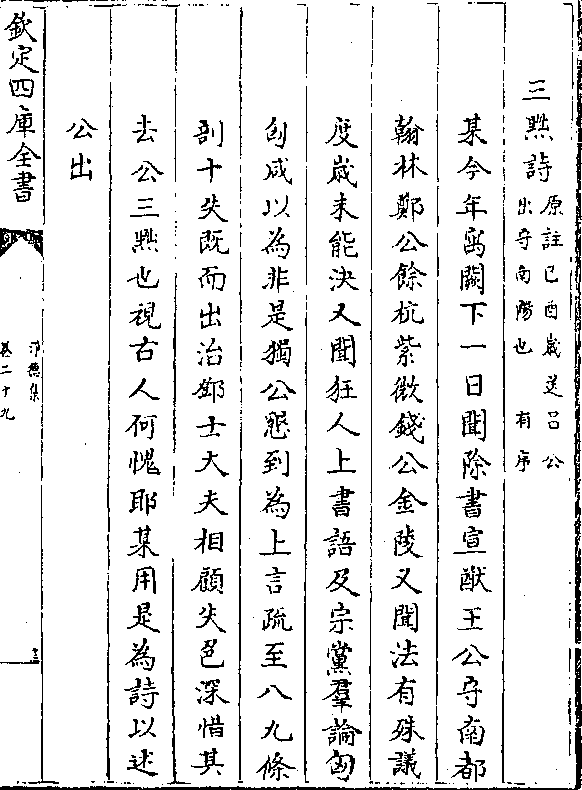 三黜詩 原註己酉歲送呂公
出守南陽也 有序
某今年寓闕下一日聞除書宣猷王公守南都
翰林鄭公餘杭紫微錢公金陵又聞法有殊議
度歲未能決又聞狂人上書語及宗黨羣論匈
匈咸以為非是獨公懇到為上言疏至八九條
剖十失既而出治鄧士大夫相顧失色深惜其
去公三黜也視古人何愧耶某用是為詩以述
公出
欽定四庫全書
淨德集
卷二十九